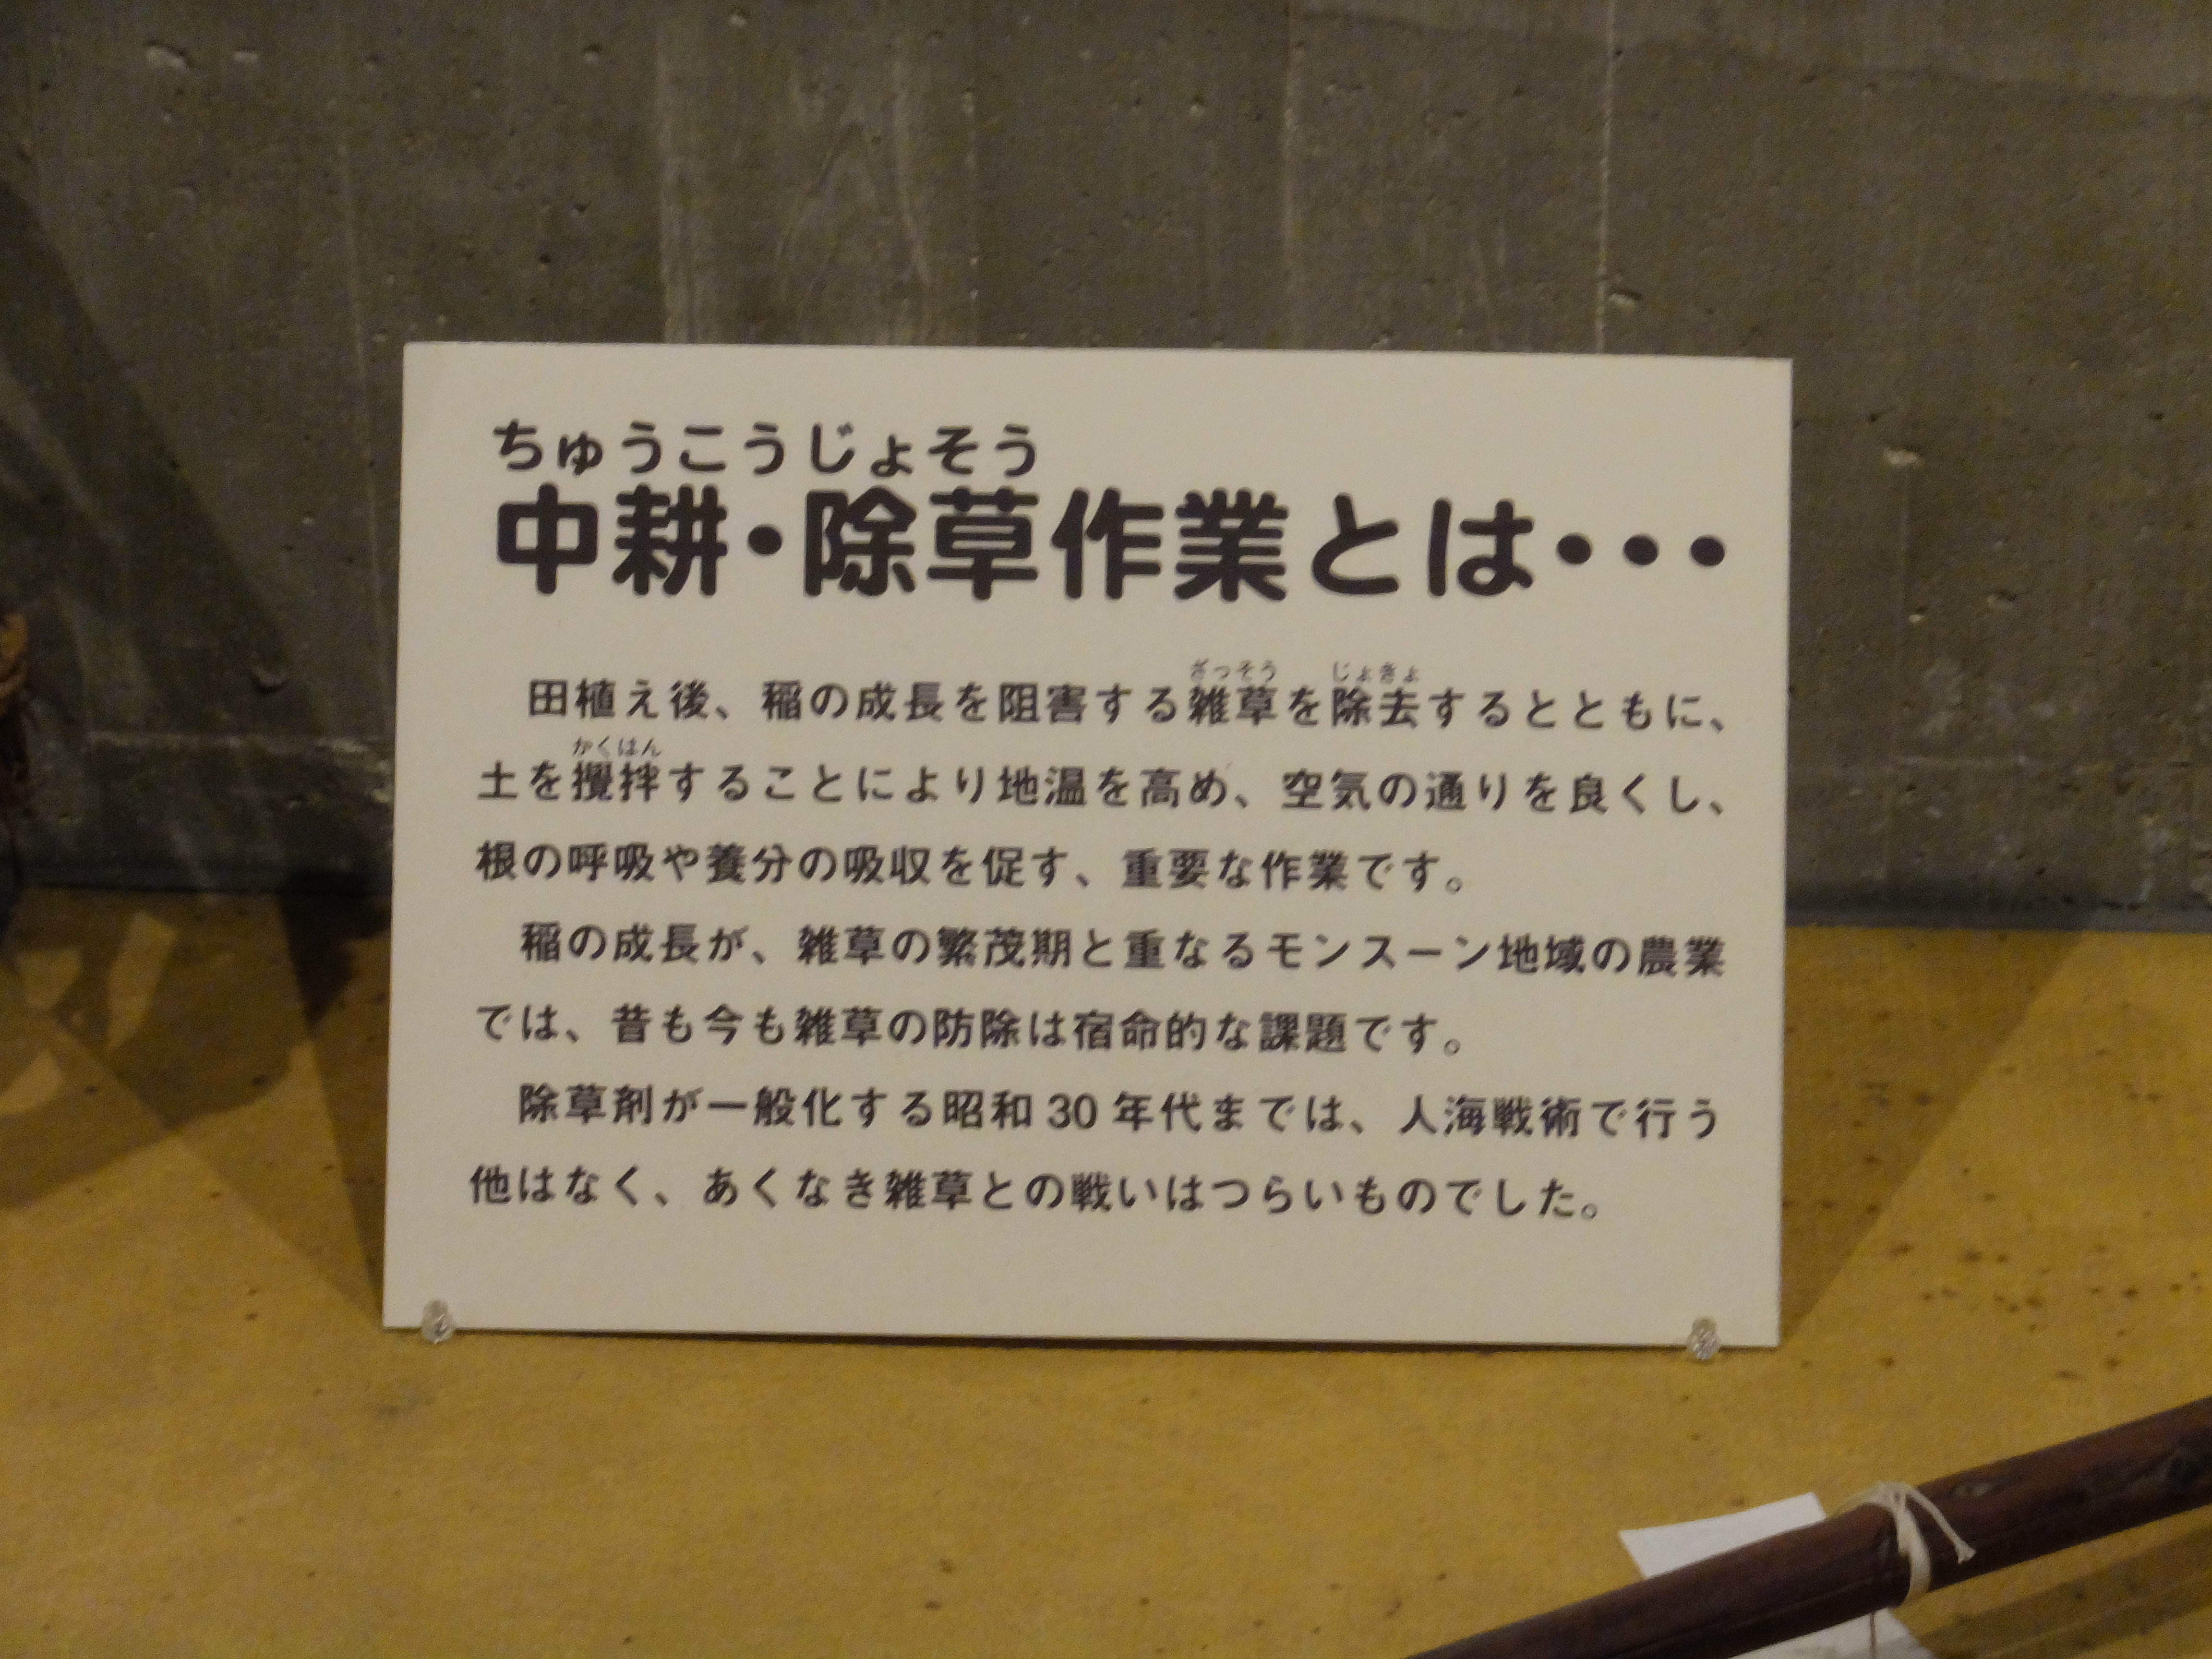 ちゅうこうじょそう
中耕・除草作業とは・・・
ざっそう じょきょ
田植え後、稲の成長を阻害する雑草を除去するとともに、
かくはん
土を攪拌することにより地温を高め、空気の通りを良くし、
根の呼吸や養分の吸収を促す、重要な作業です。
稲の成長が、雑草の繁茂期と重なるモンスーン地域の農業
では、昔も今も雑草の防除は宿命的な課題です。
除草剤が一般化する昭和30年代までは、人海戦術で行う
他はなく、あくなき雑草との戦いはつらいものでした。